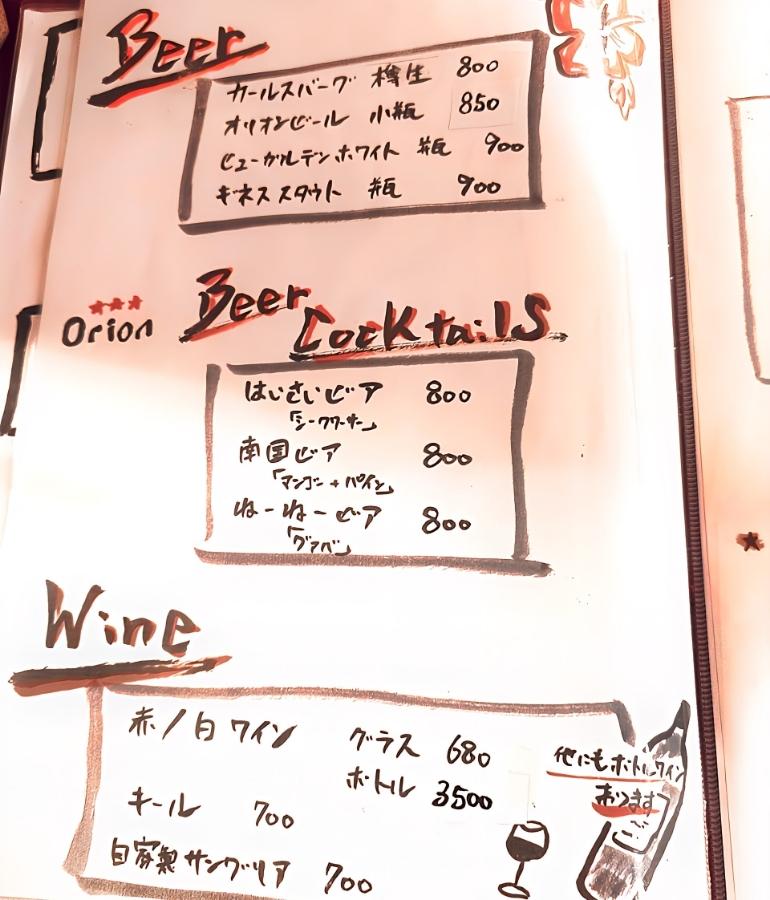 Beer
カールスバーグ 樽生 800
オリオンビール 小瓶 850
ヒューガルデンホワイト 瓶 900
ギネススタウト 瓶 900
Orion
Beer
Cocktails
はいさいビア 800
「シークワーサー」
南国ビア 800
「マンゴー+パイン」
ねーねービア 800
「グァバ」
Wine
赤/白 ワイン グラス 680
ボトル 3500
他にもボトルワイン
おります
キール 700
自家製サングリア 700